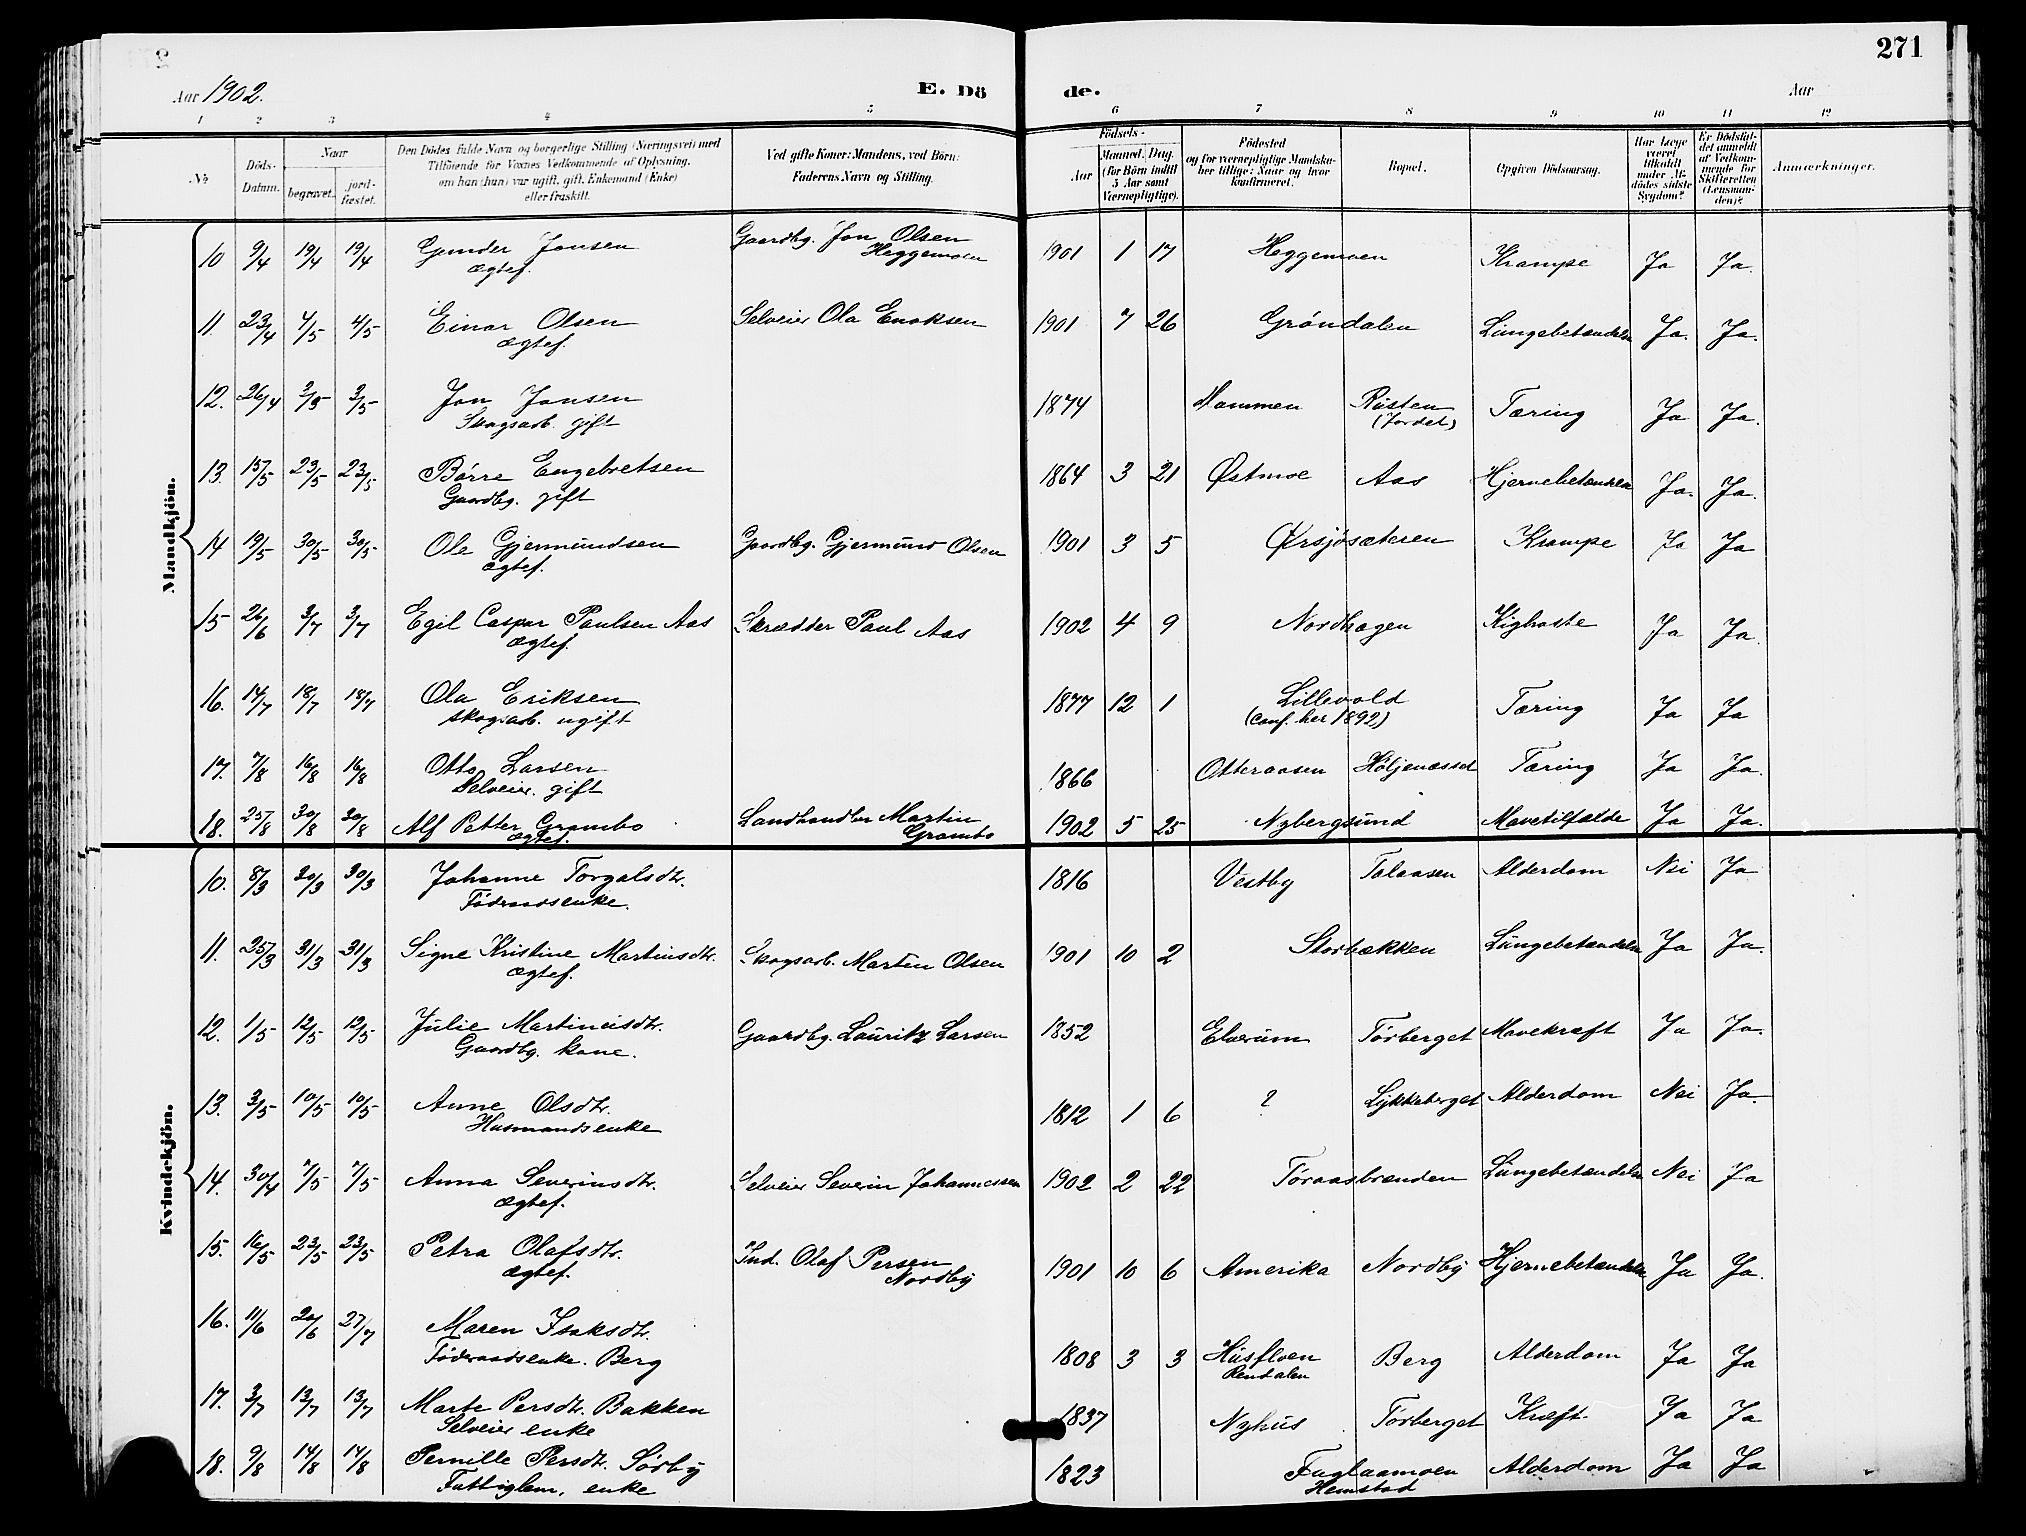 271
Aar 1902.
E. Dö
de.
Aar
1 2 3 4 5 6 7 8 9 10 11 12
Nº
Döds-Datum.
Naar
begravet.
jord-fæstet.
Den Dödes fulde Navn og borgerlige Stilling (Næringsvei) med
Tilföiende for Voxnes Vedkommende af Oplysning,
om han (hun) var ugift, gift, Enkemand (Enke)
eller fraskilt.
Ved gifte Koner: Mandens, ved Börn:
Faderens Navn og Stilling.
Födsels-
Aar
Maaned. Dag.
(for Börn indtil
5 Aar samt
Værnepligtige).
Födested
og for værnepligtige Mandska-
ber tillige: Naar og hvor
konfirmeret.
Bopæl.
Opgiven Dödsaarsag.
Har Læge
været
tilkaldt
under Af-
dödes sidste
Sygdom?
Er Dödsfal-
det anmeldt
af Vedkom-
mende for
Skifteretten
(Lensman-
den)?
Anmærkninger.
Mandkjön.
10 9/4 19/4 19/4 Gunder Jonsen Gaardbg. Jon Olsen 1901 1 17 Heggemoen Krampe Ja Ja.
ægtef. Heggemoen
11 23/4 4/5 4/5 Einar Olsen Selveier Ola Enoksen 1901 7 26 Gröndalen Lungebetændelse Ja. Ja.
ægtef.
12. 26/4 3/5 3/5 Jon Jonsen 1874 Mammen Rusten Tæring Ja Ja.
Skogsarb. gift (Jordet)
13. 15/5 23/5 23/5 Börre Engebretsen 1864 3 21 Østmoe Aas Hjernebetændelse Ja. Ja.
Gaardbg. gift
14 19/5 30/5 30/5 Ole Gjermundsen Gaardbg. Gjermund Olsen 1901 3 5 Ørsjösæteren Krampe Ja Ja
ægtef.
15 26/6 3/7 3/7 Egil Caspar Paulsen Aas Skrædder Paul Aas 1902 4 9 Nordhagen Kighoste Ja Ja.
ægtef.
16. 14/7 18/7 18/7 Ola Eriksen 1877 12 1 Lillevold Tæring Ja Ja
skogsarb. ugift (conf. her 1892)
17. 7/8 16/8 16/8 Otto Larsen 1866 Otteraasen Höljenæsset Tæring Ja Ja.
Selveier. gift
18. 25/8 30/8 30/8 Alf Petter Grambo Landhandler Martin 1902 5 25 Nybergsund Mavetilfælde Ja Ja.
ægtef. Grambo
Kvindekjön.
10. 8/3 20/3 30/3 Johanne Torgalsdtr. 1816 Vestby Talaasen Alderdom Nei Ja
Föderaadsenke.
11. 25/3 31/3 31/3 Signe Kristine Martinsdtr. Skogsarb. Martin Olsen 1901 10 2 Storbækken Lungebetændelse Ja Ja.
ægtef.
12. 1/5 12/5 12/5 Julie Martineisdtr. Gaardbg. Lauritz Larsen 1852 Elverum Törberget Mavekræft Ja Ja.
Gaardbg. kone.
13. 3/5 10/5 10/5 Anne Olsdtr. 1812 1 6 ? Lykkeberget Alderdom Nei Ja.
Husmandsenke
14. 30/4 7/5 7/5 Anna Severinsdtr. Selveier Severin Johannessen 1902 2 22 Töraasbrænden Lungebetændelse Nei Ja
ægtef.
15. 16/5 23/5 23/5 Petra Olafsdtr. Ind. Olaf Persen 1901 10 6 Amerika Nordby Hjernebetændelse Ja Ja.
ægtef. Nordby
16. 11/6 20/6 27/7 Maren Isaksdtr. 1808 3 3 Husfloen Berg Alderdom Ja Ja
Föderaadsenke. Berg Rendalen
17. 3/7 13/7 13/7 Marte Persdtr. Bakken 1837 Nyhus Törberget Kræft. Ja Ja
Selveier enke
18. 9/8 14/8 14/8 Pernille Persdtr. Sörby 1823 Fuglaamoen Alderdom Ja Ja
Fattiglem, enke Hemstad